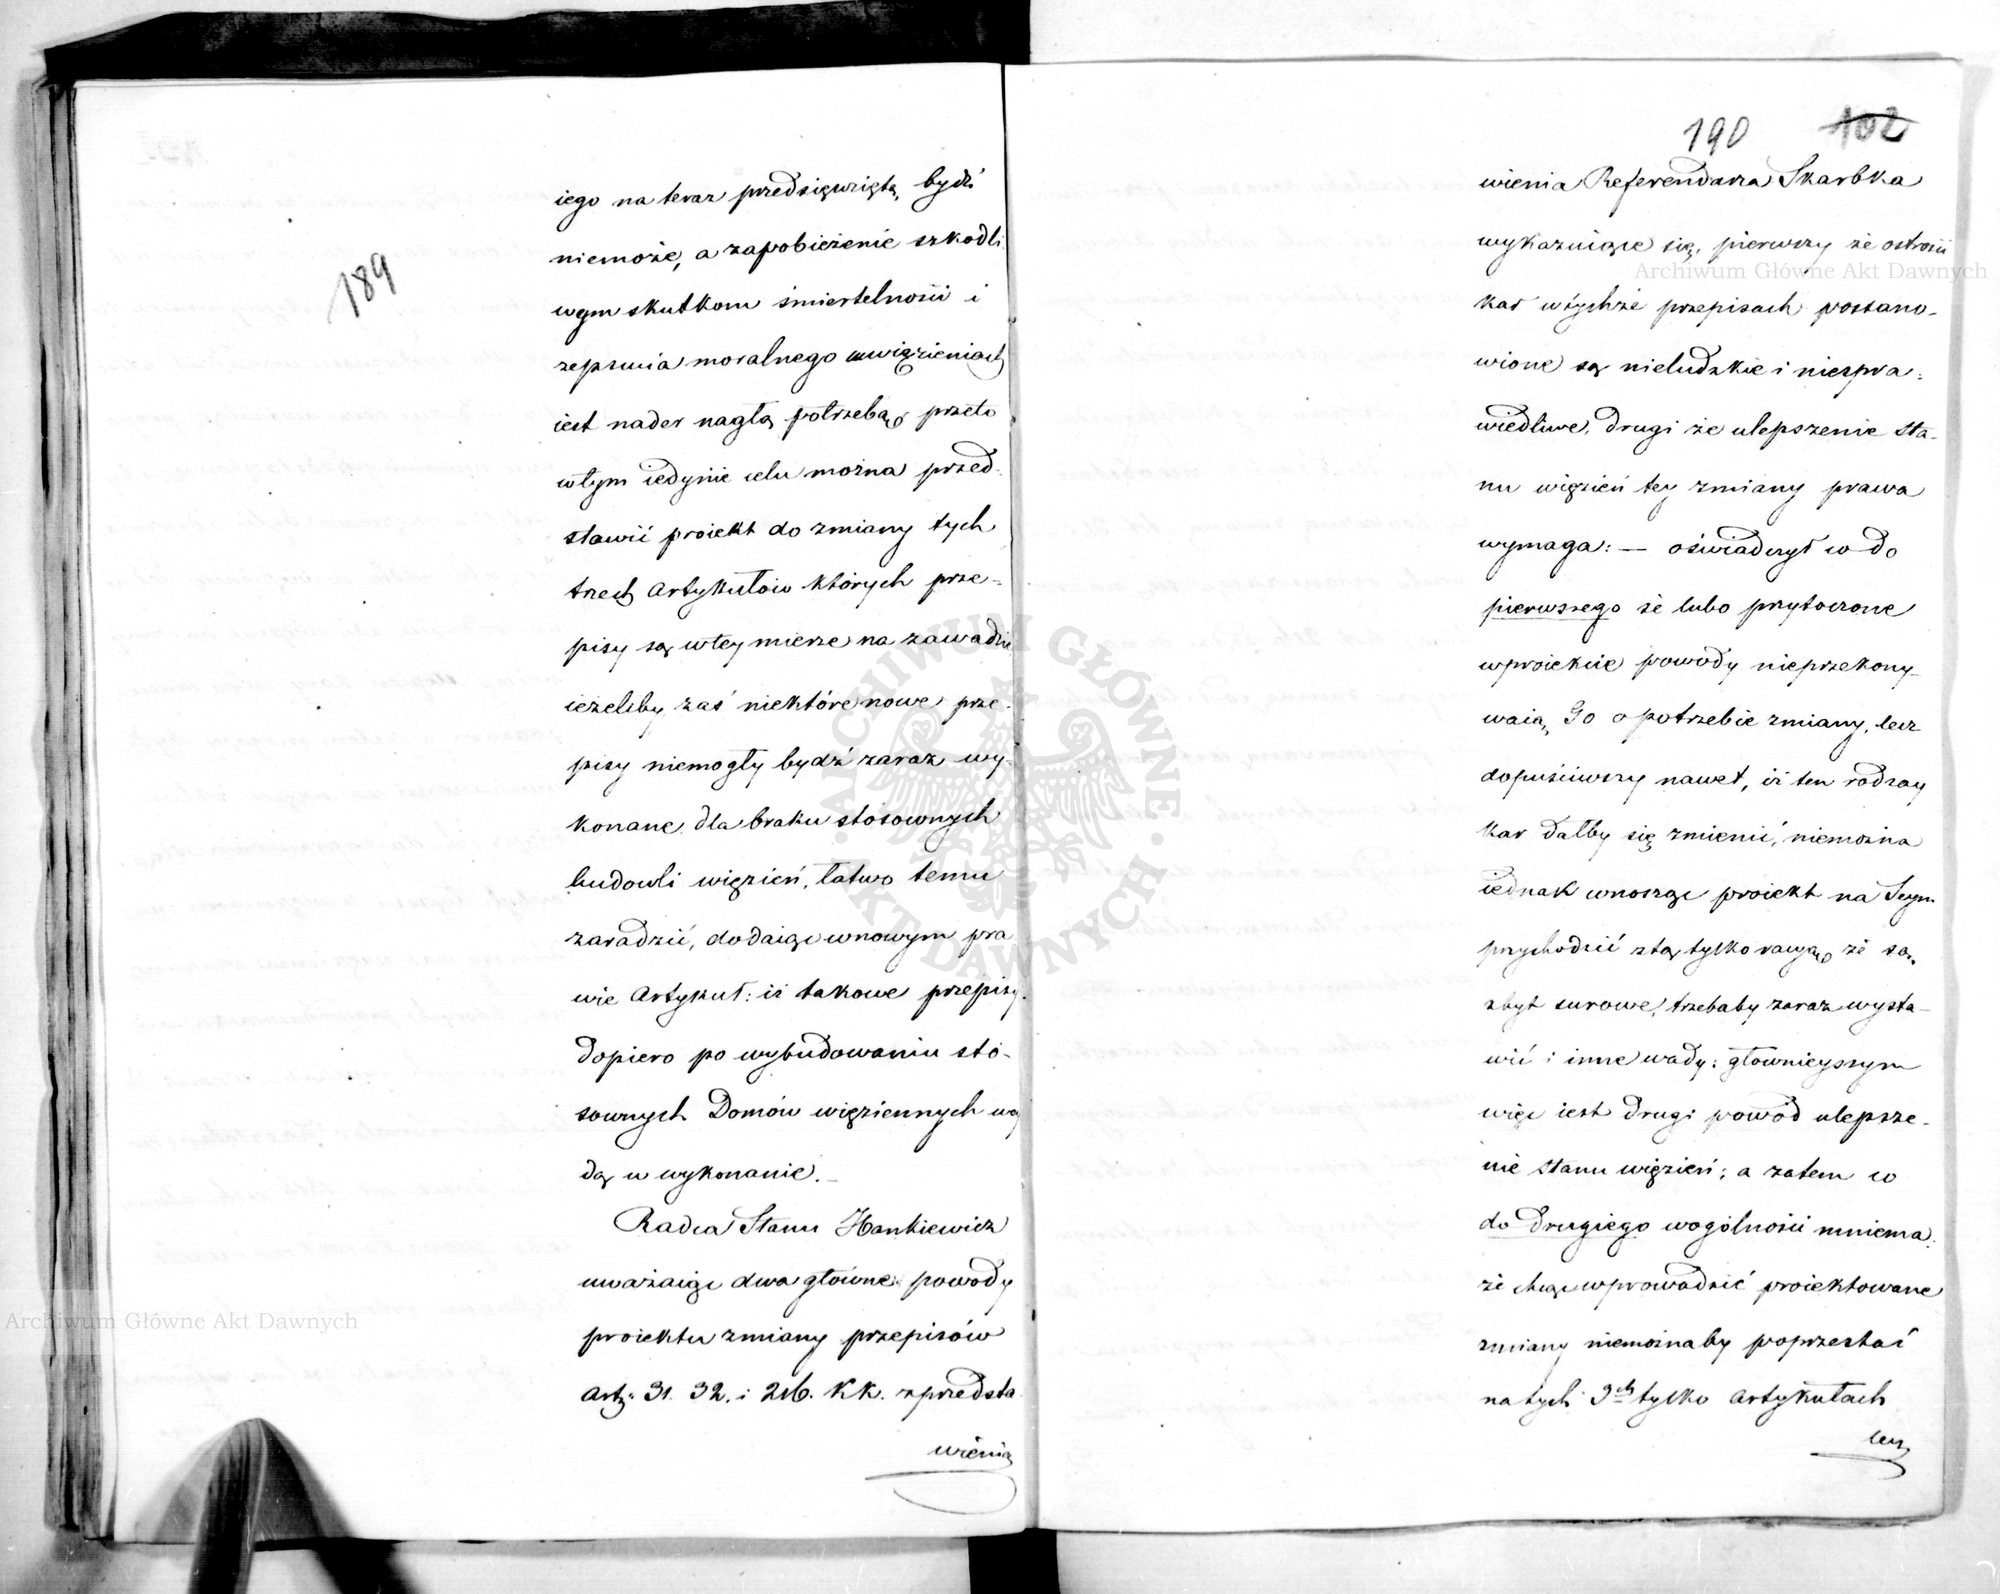 189
iego na teraz przedsięwziętą bydź
niemoże, a zapobieżenie szkodli
wym skutkom śmiertelności i
zepsucia moralnego w więzieniach
iest nader nagłą potrzebą, przeto
wtym iedynie celu można przed-
stawić proiekt do zmiany tych
trzech Artykułów których prze-
pisy są wtey mierze na zawadzie
ieżeliby zaś niektóre nowe prze-
pisy niemogły bydź zaraz wy-
konane dla braku stósownych
budowli więzień, łatwo temu
zaradzić, dodaiąc wnowym pra
wie Artykuł: iż takowe przepisy
dopiero po wybudowaniu stó-
sownych Domów więziennych wey
dą w wykonanie.—
Radca Stanu Hankiewicz
uważaiąc dwa główne powody
proiektu zmiany przepisów
Art: 31. 32. i 216. KK. z przedsta
wienia
190 102
wienia Referendarza Skarbka
wykazuiące się, pierwszy że ostrości
kar wtychże przepisach postano-
wione są nieludzkie i niespra-
wiedliwe, drugi że ulepszenie sta-
nu więzień tey zmiany prawa
wymaga: — oświadczył w do
pierwszego że lubo przytoczone
wproiekcie powody nieprzekony-
waią Go o potrzebie zmiany, lecz
dopuściwszy nawet, iż ten rodzay
kar dałby się zmienić, niemożna
iednak wnosząc proiekt na Seym
przychodzić ztą tylko racyą, że są
zbyt surowe, trzebaby zaraz wysta-
wić i inne wady: główniejszym
więc iest drugi powód ulepsze-
nie stanu więzień; a zatem w
do drugiego wogólności mniema:
że chcąc wprowadzić proiektowane
zmiany niemożnaby poprzestać
na tych 3ch tylko Artykułach
lecz
Archiwum Główne Akt Dawnych
Archiwum Główne Akt Dawnych
ARCHIWUM GŁÓWNE · AKT DAWNYCH ·